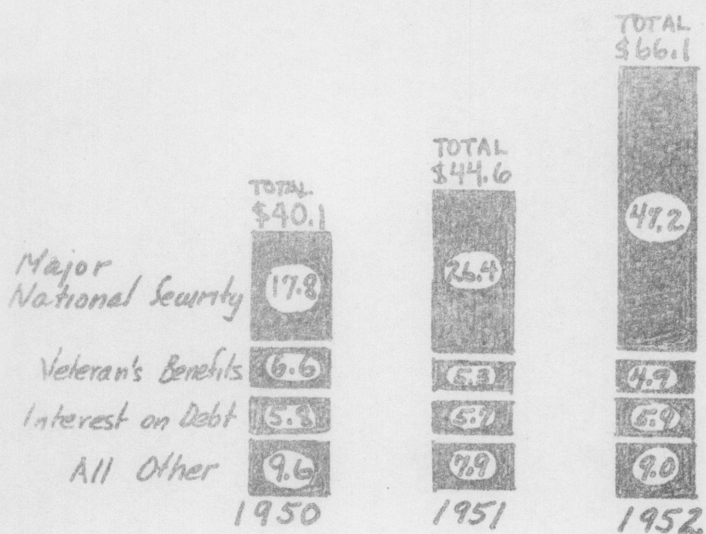 TOTAL
$66.1
TOTAL
$44.6
TOTAL
$40.1
Major
National Security 17.8 26.4
Veteran's Benefits 6.6 5.3 4.9
Interest on Debt 5.8 5.9
All Other 9.6 7.9 9.0
1950 1951 1952